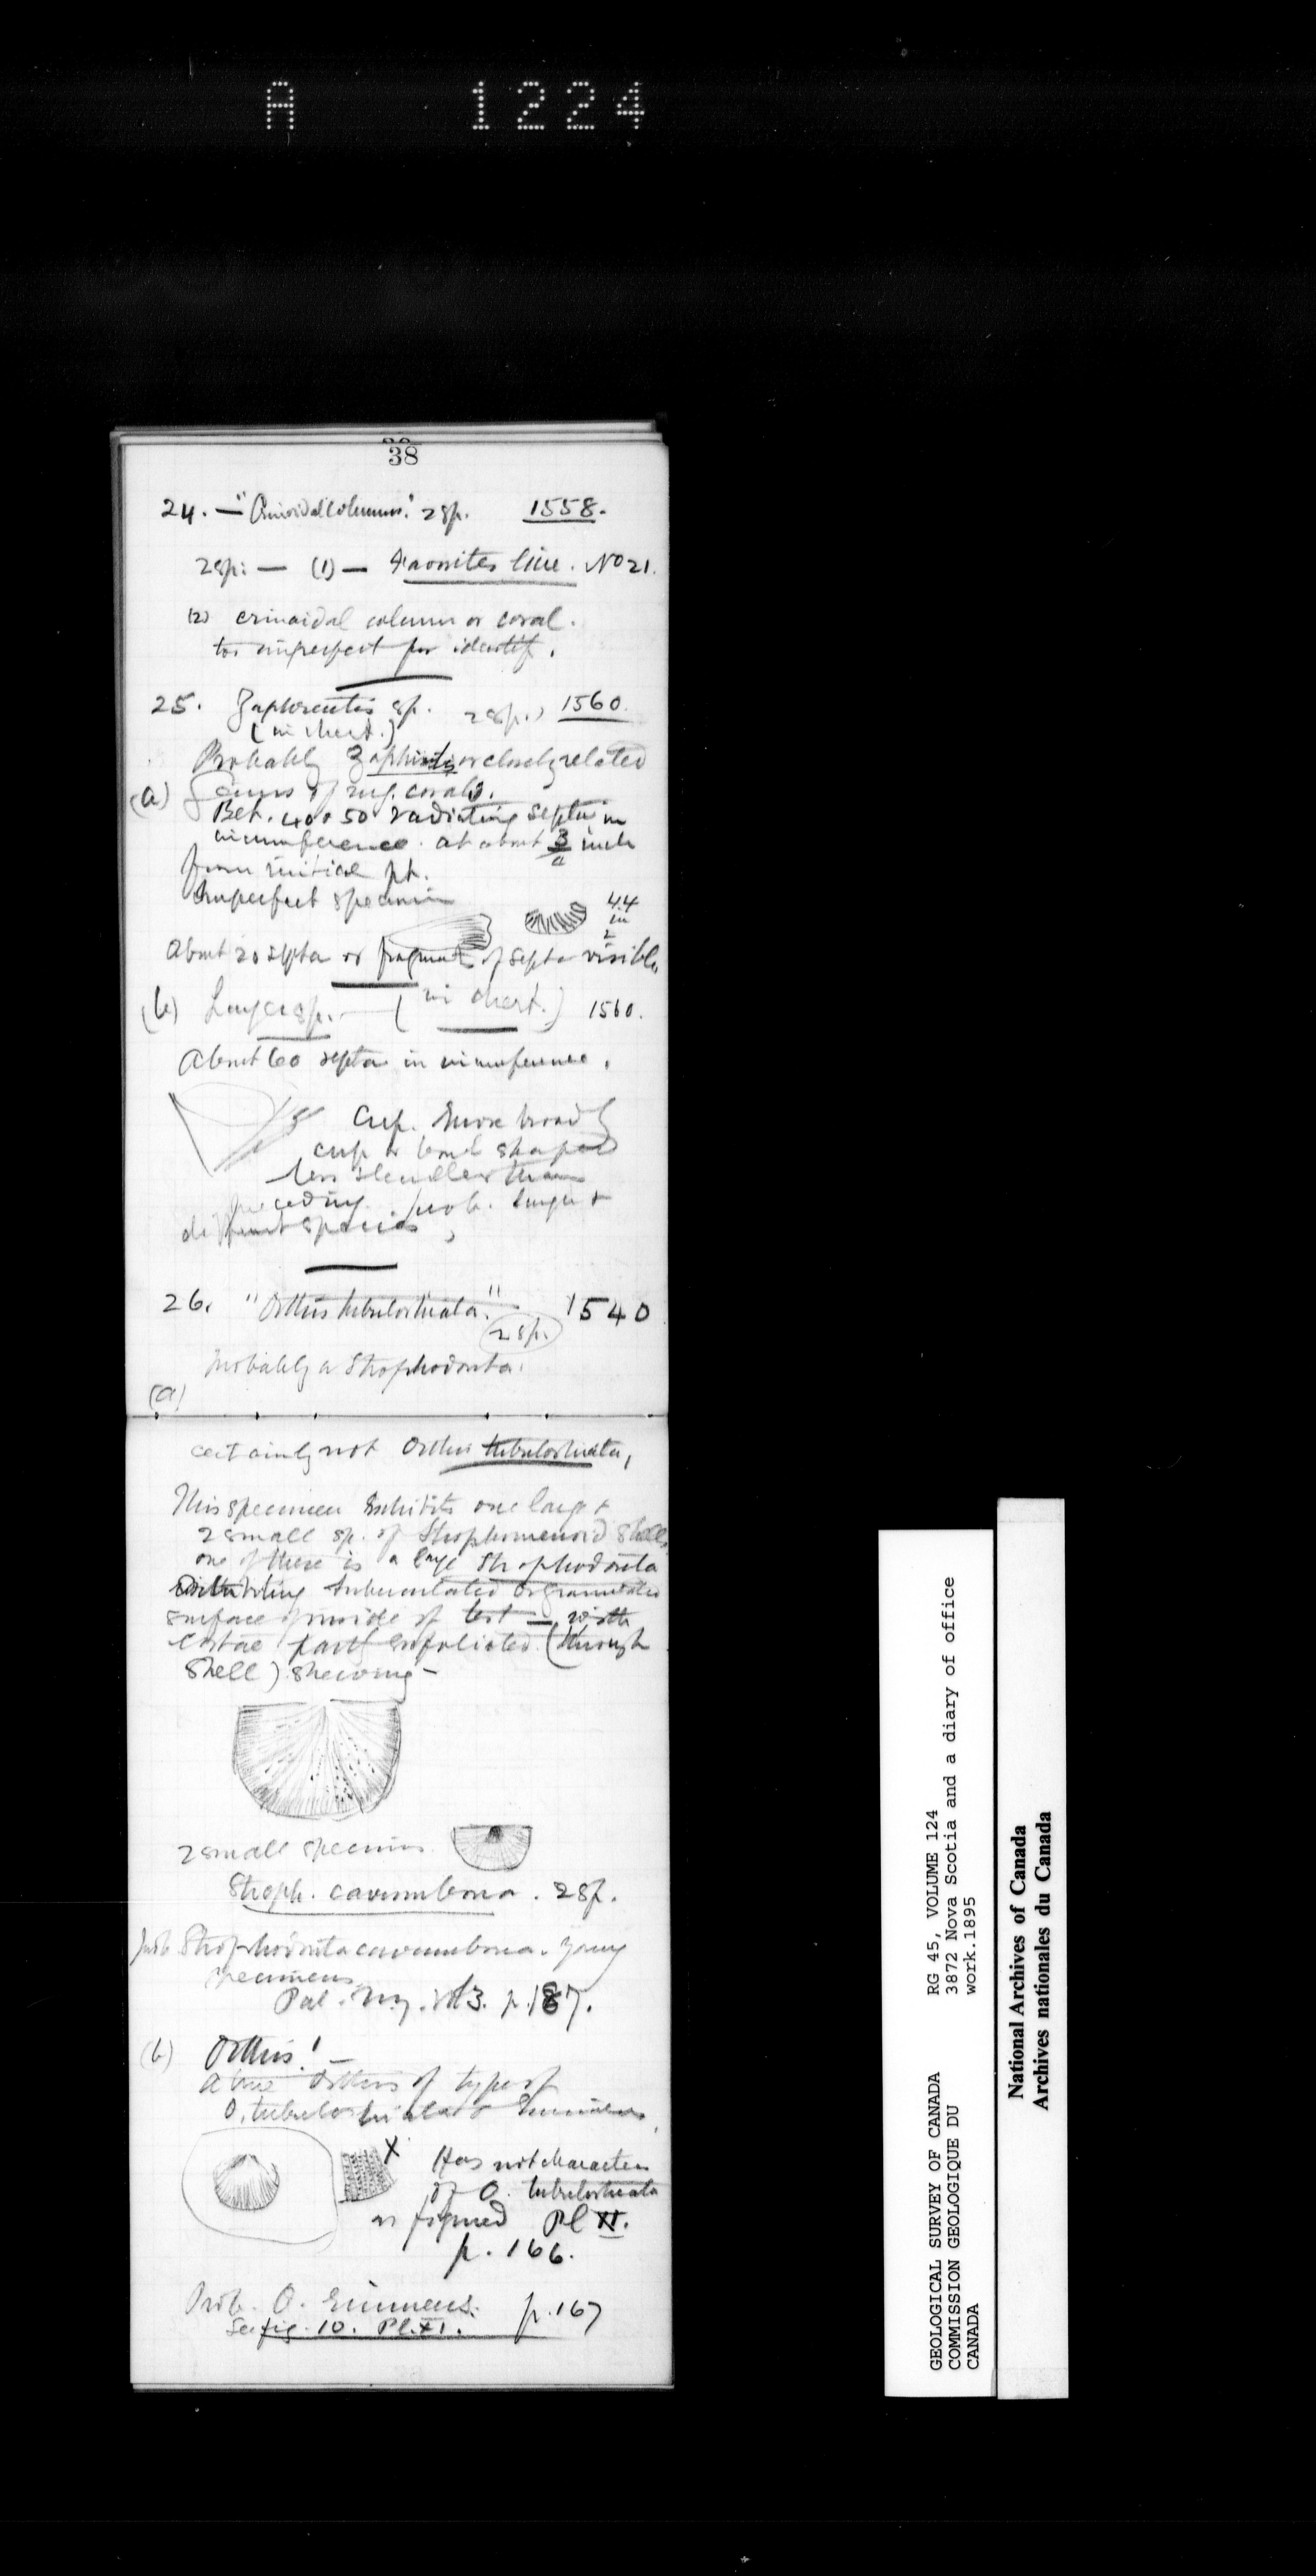 A 1224
38
24. — "Crinoidal columns." 2 sp. 1558.
2 sp: — (1) — Favosites like. No 21.
(2) crinoidal column or coral.
too imperfect for identif.
25. Zaphrentis sp. 2 sp., 1560.
(in chert.)
Probably Zaphrentis or closely related
(a) Genus of rug. corals.
Bet. 40 & 50 radiating septa in
circumference at about 3 inch
from initial pt.
Imperfect specimen
44
in
2
About 20 septa or fragments of septa visible
(b) Larger sp. — (in chert.) 1560.
About 60 septa in circumference.
Cup. more broadly
cup or bowl shaped
less slender than
preceding. prob. larger &
different species,
26. "Orthis tubulostriata." 1540
2 sp.
Probably a Strophodonta.
(a)
certainly not Orthis tubulostriata,
This specimen exhibits one large &
2 small sp. of Strophomenoid shells
one of these is a large Strophodonta
exhibiting tuberculated or granulated
surface of inside of test — with
costae partly exfoliated (through
shell) shewing —
2 small specimens
Stroph. cavumbona. 2 sp.
Prob. Strophodonta cavumbona. young
specimens
Pal. N.Y. vol 3. p. 187.
(b) Orthis! —
a true Orthis of type of
O. tubulostriata & eminens,
X Has not characters
of O. tubulostriata
as figured Pl XI.
p. 166.
Prob. O. eminens. p. 167
See fig. 10. Pl. XI.
GEOLOGICAL SURVEY OF CANADA RG 45, VOLUME 124
COMMISSION GEOLOGIQUE DU 3872 Nova Scotia and a diary of office
CANADA work.1895
National Archives of Canada
Archives nationales du Canada